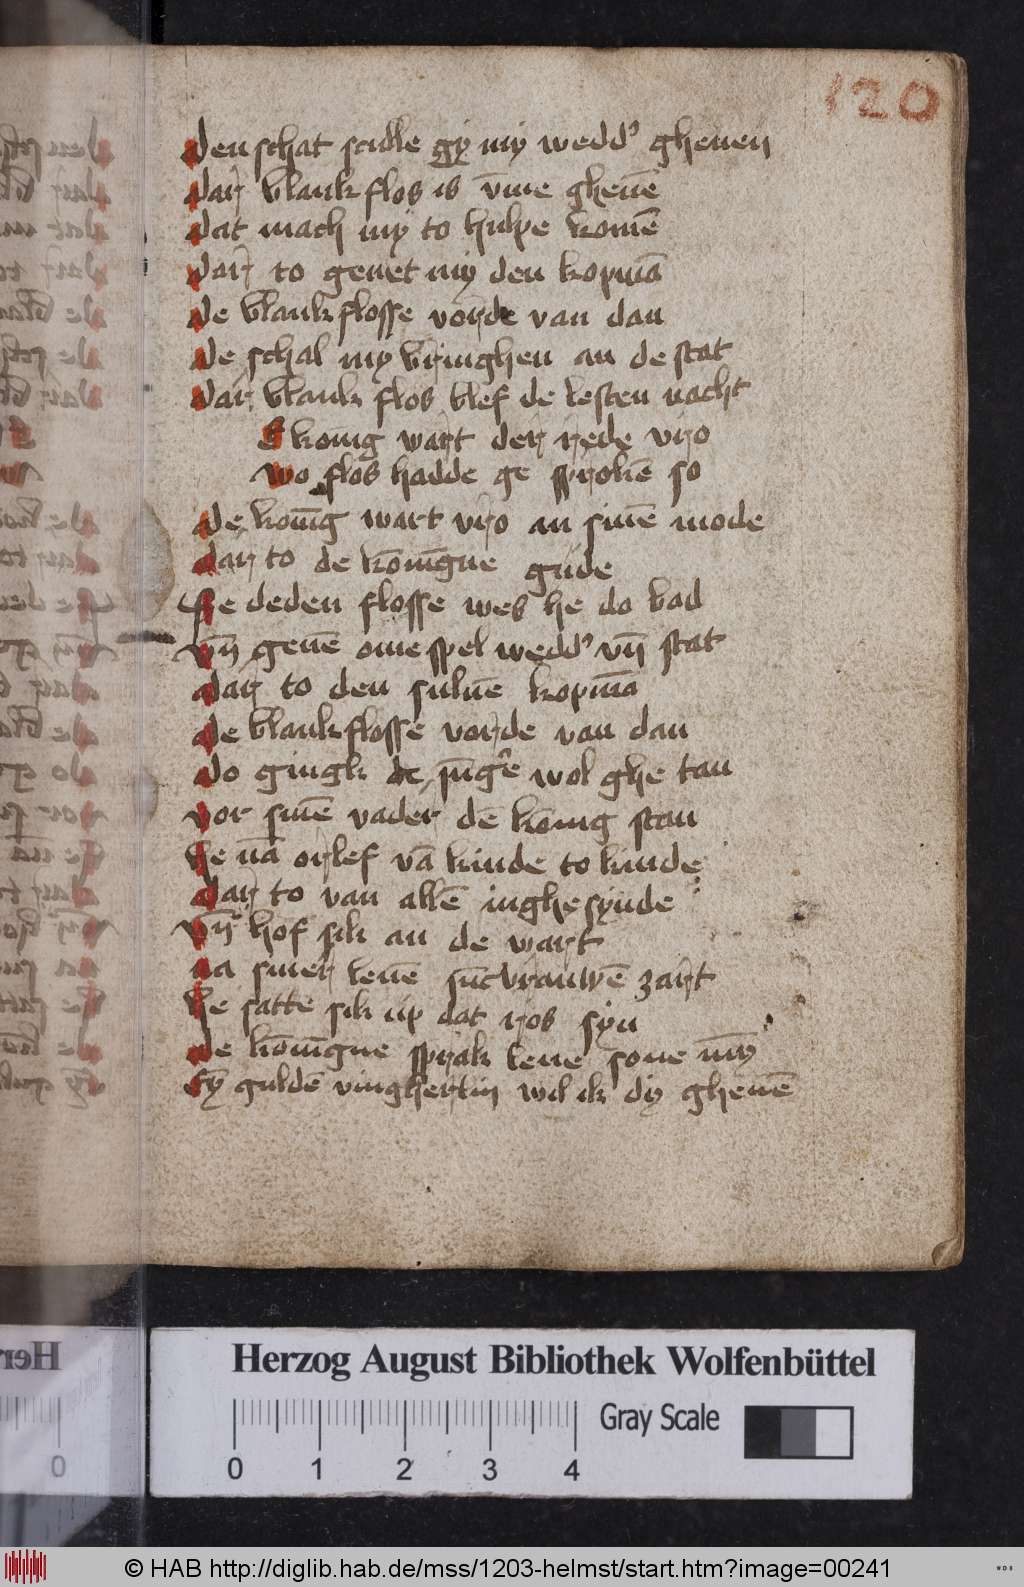 120
den schat sculle gy my wedd' gheuen
dar blankflos is v̄me gheuē
dat mach my to hulpe komē
dar to geuet my den kopmā
de blankflosse vorde van dan
de schal my bringhen an de stat
dar blank flos blef de lesten nacht
konig wart der rede vro
wo flos hadde ge sprokē so
de konīg wart vro an sinē mode
dar to de konīgne gude
se deden flosse wes he do bad
vn̄ geuē ome spel wedd' vn̄ stat
dar to den suluē kopmā
de blankflosse vorde van dan
do gingk de iūgʳe wol ghe tan
vor sinē vader dē kōnig stan
he nā orlef vā kinde to kinde
dar to van allē inghesynde
vn̄ hof sik an de wart
na siner leuē iūcvrauwē zart
he satte sik up dat ros syn
de konīgne sprak leue sone mȳ
Ey guldē vingherlin wil ik dy gheuē
Herzog August Bibliothek Wolfenbüttel
Gray Scale
0 1 2 3 4
© HAB http://diglib.hab.de/mss/1203-helmst/start.htm?image=00241